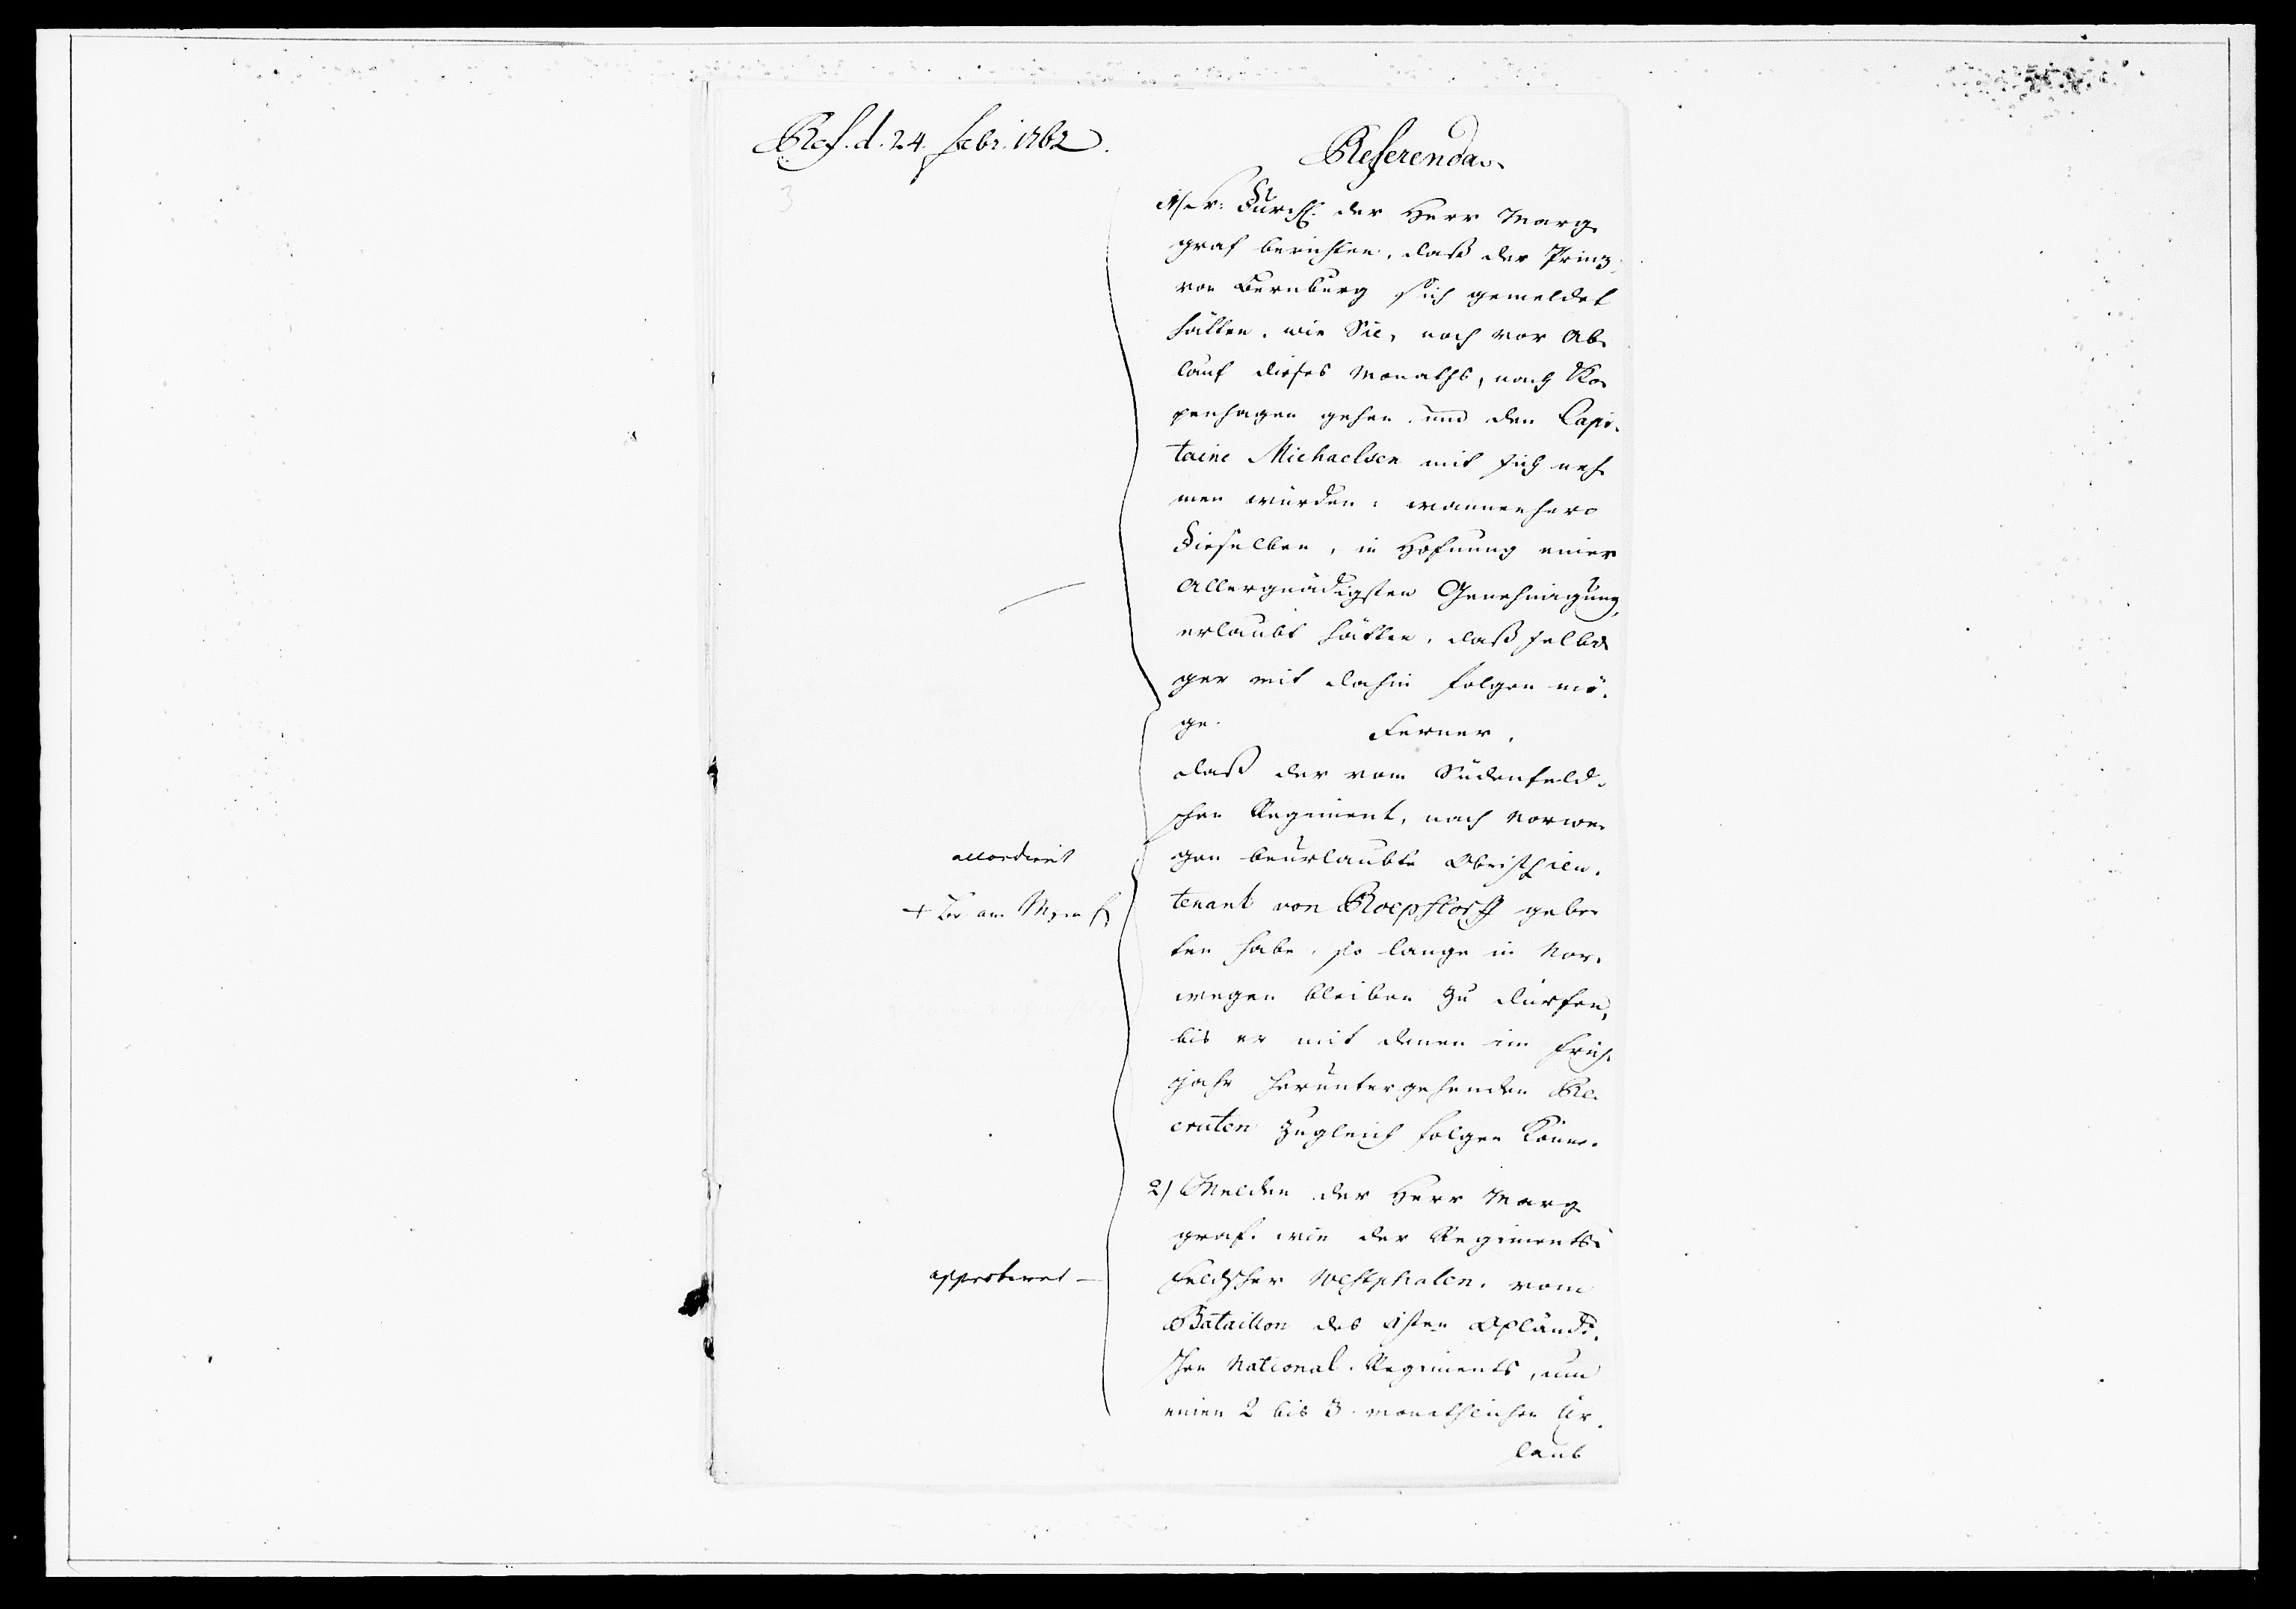 Ref. d. 24. Febr. 1762.
3
Referenda.
1/ Sr: Durchl. der Herr Marg-
graf berichten, daß der Printz
von Bernburg sich gemeldet
hätten, wie Sie, noch vor Ab-
lauf dieses Monaths, nach Ko-
penhagen gehen und den Capi-
taine Michaelsen mit sich neh-
men würden; wannenhero
Dieselben, in Hofnung einer
Allergnädigsten Genehmigung,
erlaubt hätten, daß selbi-
ger mit dahin folgen mö-
ge. Ferner,
daß der vom Südenfield-
schen Regiment, nach Norwe-
gen beurlaubte Obristlieu-
tenant von Roepstorff gebe-
ten habe, so lange in Nor-
wegen bleiben zu dürfen,
bis er mit denen im Früh-
jahr heruntergehenden Re-
cruten zugleich folgen könne.
accordirt
2/ Melden der Herr Marg-
graf, wie der Regiments-
Feldscher Westphalen, vom
Bataillon des 1sten Opländi-
schen National-Regiments, um
einen 2 bis 3 monathlichen Ur-
laub
approbiret —